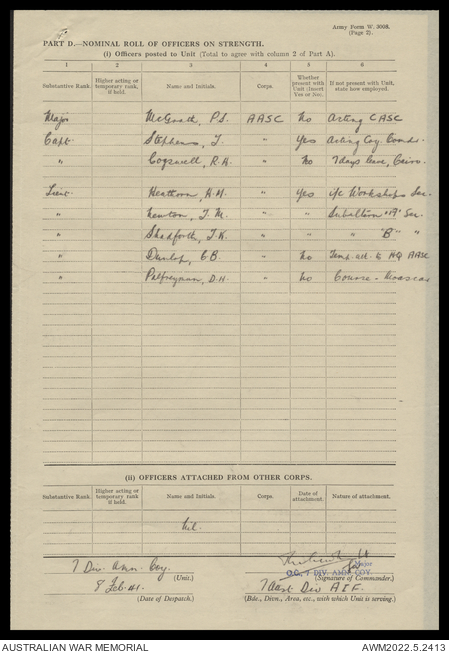 Army Form W. 3008.
(Page 2).
PART D.—NOMINAL ROLL OF OFFICERS ON STRENGTH.
(i) Officers posted to Unit (Total to agree with column 2 of Part A).
1 2 3 4 5 6
Substantive Rank. Higher acting or temporary rank, if held. Name and Initials. Corps. Whether present with Unit (Insert Yes or No). If not present with Unit, state how employed.
Major McGrath, P.S. AASC No Acting CASC
Capt. Stephens, J. " Yes Acting Coy. Comdr.
" Cogswell, R.A. " No 7 days leave, Cairo.
Lieut. Heathorn, A.W. " Yes i/c Workshops Sec.
" Newton, J.M. " " Subaltern "A" Sec.
" Shadforth, J.K. " " " "B" "
" Dunlop, C.B. " No Temp. att. to HQ AASC
" Palfreyman, D.H. " No Course - Moascar
(ii) OFFICERS ATTACHED FROM OTHER CORPS.
Substantive Rank. Higher acting or temporary rank if held. Name and Initials. Corps. Date of attachment. Nature of attachment.
Nil.
7 Div. Amn. Coy. (Unit.)
Major
O.C. 7 DIV. AMN. COY.
(Signature of Commander.)
8 Feb. 41. (Date of Despatch.)
7 Aust. Div A.I.F.
(Bde., Divn., Area, etc., with which Unit is serving.)
AUSTRALIAN WAR MEMORIAL AWM2022.5.2413